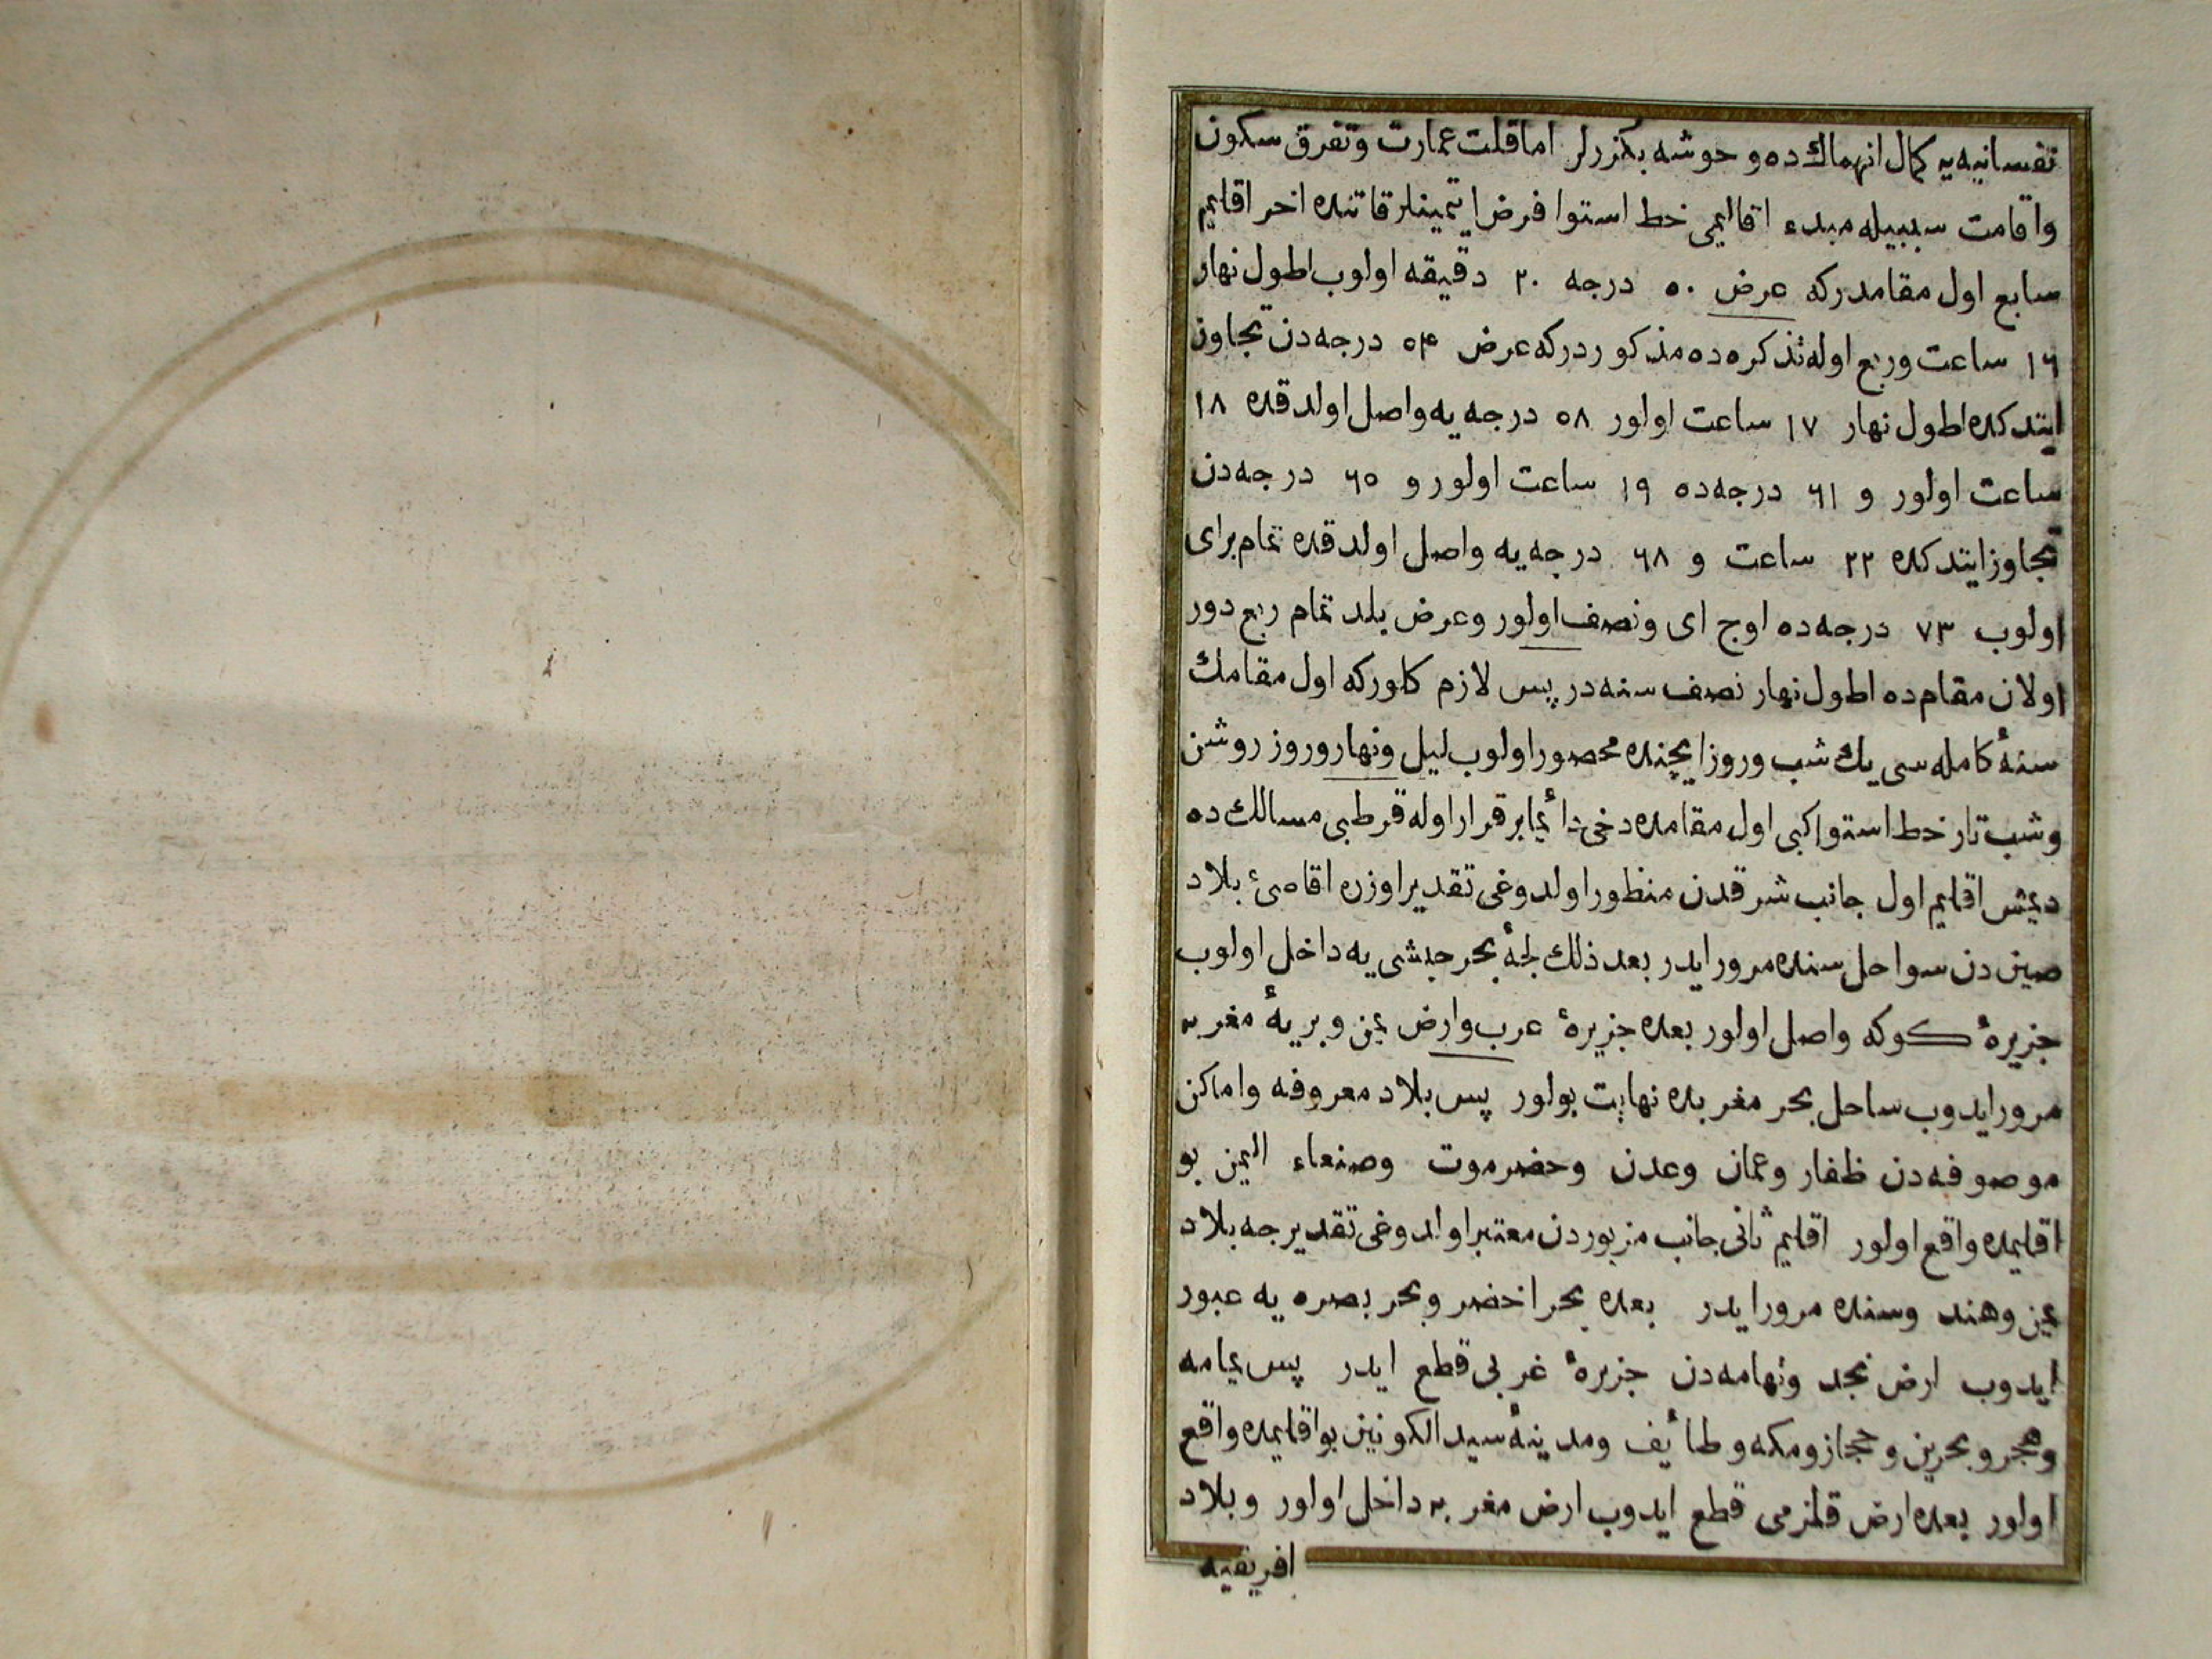 نفسانیه‌یه کمال انهماك ده و حوشه بکزرلر اما قلت عمارت و تفرق سکون
واقامت سببیله مبدء اقالیمی خط استوا فرض ایتمینلر قاتنده اخر اقلیم
سابع اول مقامدرکه عرض ۵۰ درجه ۲۰ دقیقه اولوب اطول نهار
۱۶ ساعت وربع اوله تذکره‌ده مذکوردرکه عرض ۵۴ درجه‌دن تجاوز
ایتدکده اطول نهار ۱۷ ساعت اولور ۵۸ درجه‌یه واصل اولدقده ۱۸
ساعت اولور و ۶۱ درجه‌ده ۱۹ ساعت اولور و ۶۵ درجه‌دن
تجاوز ایتدکده ۲۲ ساعت و ۶۸ درجه‌یه واصل اولدقده تمام برای
اولوب ۷۳ درجه‌ده اوچ ای ونصف اولور وعرض بلد تمام ربع دور
اولان مقام‌ده اطول نهار نصف سنه‌در پس لازم کلورکه اول مقامك
سنهٔ کامله‌سی یك شب وروز ایچنده محصور اولوب لیل ونهار وروز روشن
وشب تار خط استوا کبی اول مقامده دخی دائما برقرار اوله قرطبی مسالك ده
دیمش اقلیم اول جانب شرقدن منظور اولدوغی تقدیر اوزره اقاصیٔ بلاد
صین دن سواحل سنده مرور ایدر بعد ذلك لجهٔ بحر حبشی یه داخل اولوب
جزیرهٔ کوکه واصل اولور بعده جزیرهٔ عرب وارض یمن و بریهٔ مغربه
مرور ایدوب ساحل بحر مغربده نهایت بولور پس بلاد معروفه واماکن
موصوفه‌دن ظفار وعمان وعدن وحضرموت وصنعاء الیمن بو
اقلیمده واقع اولور اقلیم ثانی جانب مزبوردن معتبر اولدوغی تقدیرجه بلاد
یمن وهند وسنده مرور ایدر بعده بحر اخضر وبحر بصره یه عبور
ایدوب ارض نجد وتهامه‌دن جزیرهٔ غربی قطع ایدر پس یمامه
وهجر وبحرین وحجاز ومکه وطائیف ومدینهٔ سید الکونین بو اقلیمده واقع
اولور بعده ارض قلزمی قطع ایدوب ارض مغربه داخل اولور وبلاد
افریقیه